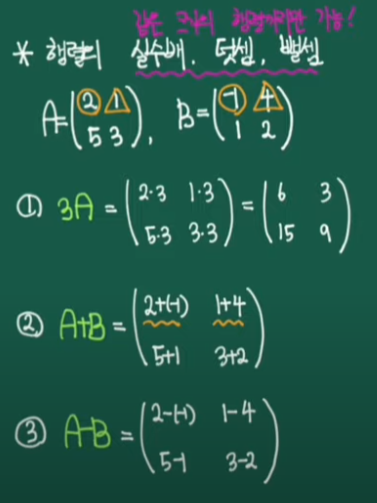 같은 크기의 행렬끼리만 가능!
* 행렬의 실수배, 덧셈, 뺄셈
A=(2 1
5 3), B=(-1 4
1 2)
① 3A = (2·3 1·3
5·3 3·3) = (6 3
15 9)
② A+B = (2+(-1) 1+4
5+1 3+2)
③ A-B = (2-(-1) 1-4
5-1 3-2)